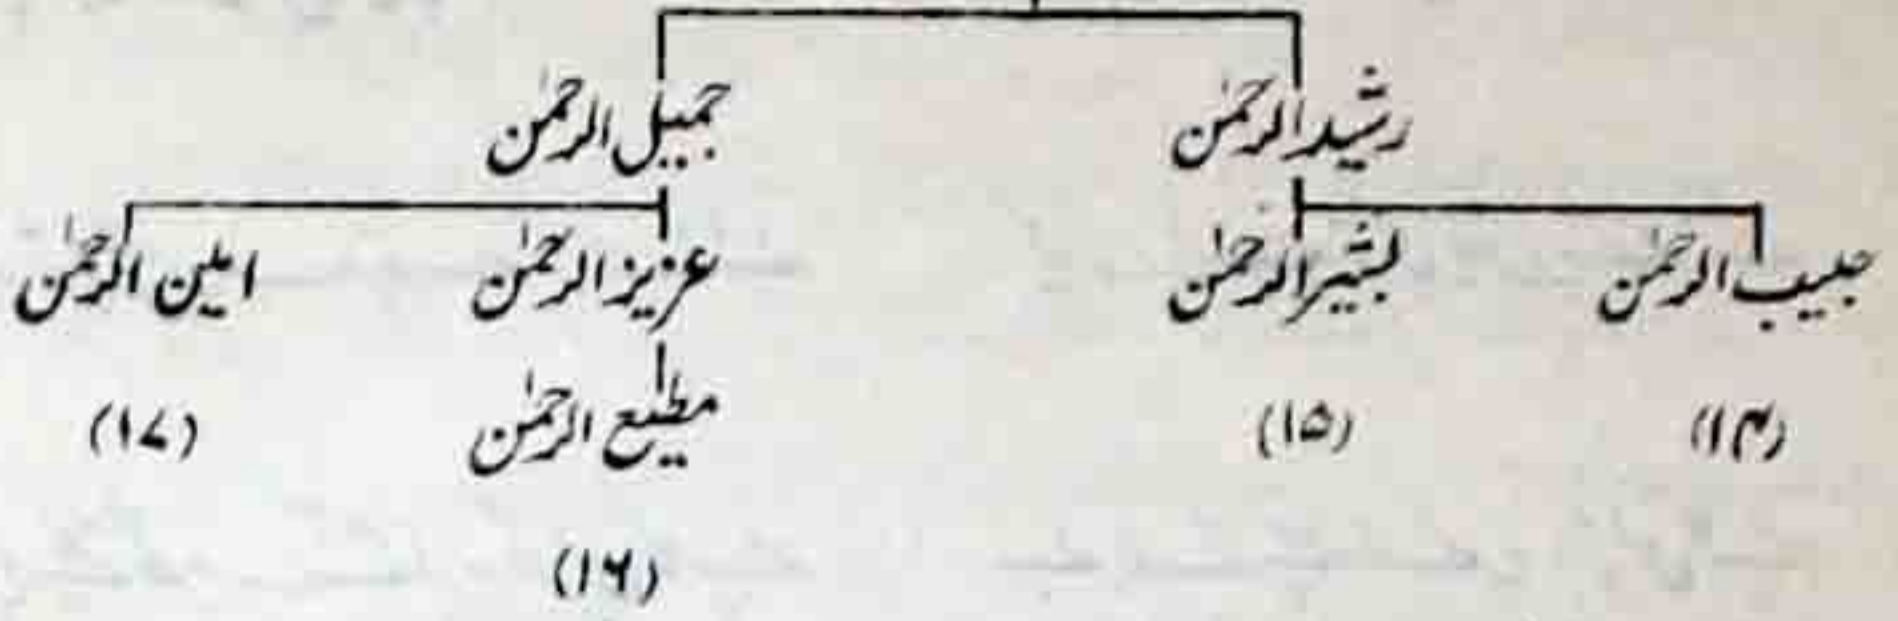 رشید الرحمٰن جمیل الرحمٰن
حبیب الرحمٰن بشیر الرحمٰن عزیز الرحمٰن امین الرحمٰن
مطیع الرحمٰن
(۱۴) (۱۵) (۱۷)
(۱۶)